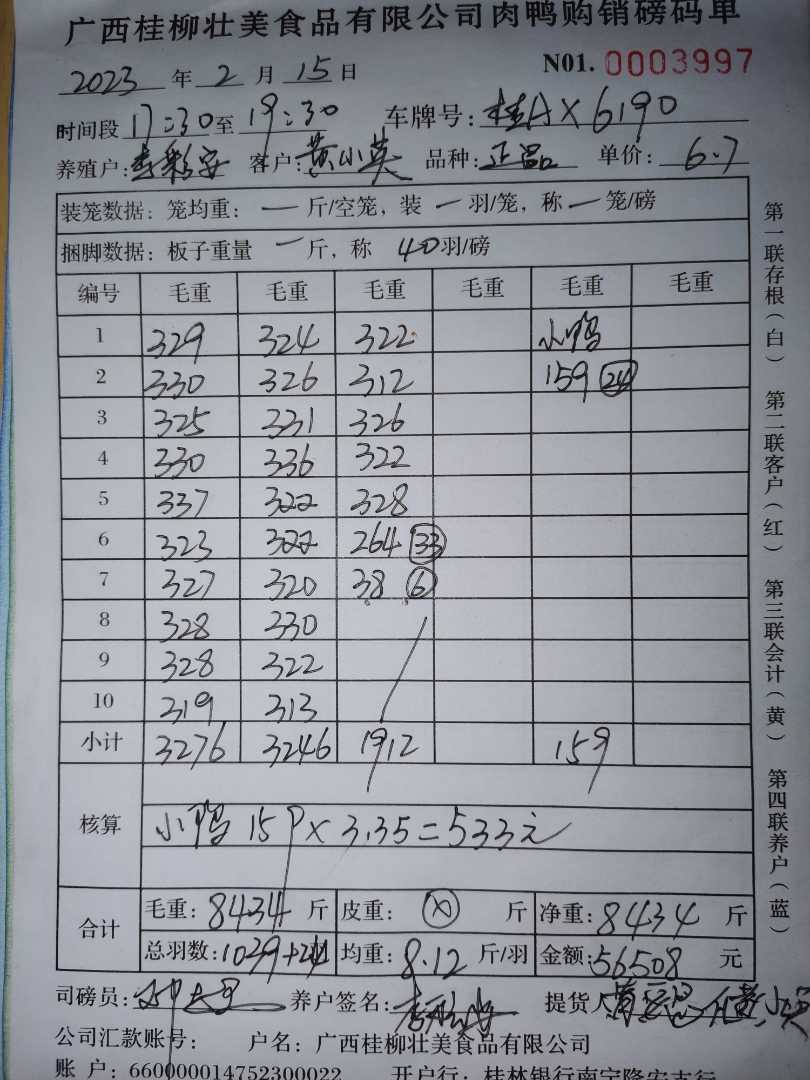 广西桂柳壮美食品有限公司肉鸭购销磅码单
2023 年 2 月 15 日 N01. 0003997
时间段 17:30 至 19:30 车牌号: 桂AX6190
养殖户: 李彩安 客户: 黄小英 品种: 正品 单价: 6.7
装笼数据: 笼均重: 一 斤/空笼, 装 一 羽/笼, 称 一 笼/磅
捆脚数据: 板子重量 一 斤, 称 40 羽/磅
编号 毛重 毛重 毛重 毛重 毛重 毛重
1 329 324 322 小鸭
2 330 326 312 159 24
3 325 331 326
4 330 336 322
5 337 322 328
6 323 322 264 33
7 327 320 38 6
8 328 330
9 328 322
10 319 313
小计 3276 3246 1912 159
核算
小鸭 159 × 3.35 = 533元
合计
毛重: 8434 斤 皮重: X 斤 净重: 8434 斤
总羽数: 1039+24 均重: 8.12 斤/羽 金额: 56508 元
司磅员: 养户签名: 提货人
公司汇款账号: 户名: 广西桂柳壮美食品有限公司
账 户: 660000014752300022 开户行: 桂林银行南宁隆安支行
第一联存根(白) 第二联客户(红) 第三联会计(黄) 第四联养户(蓝)